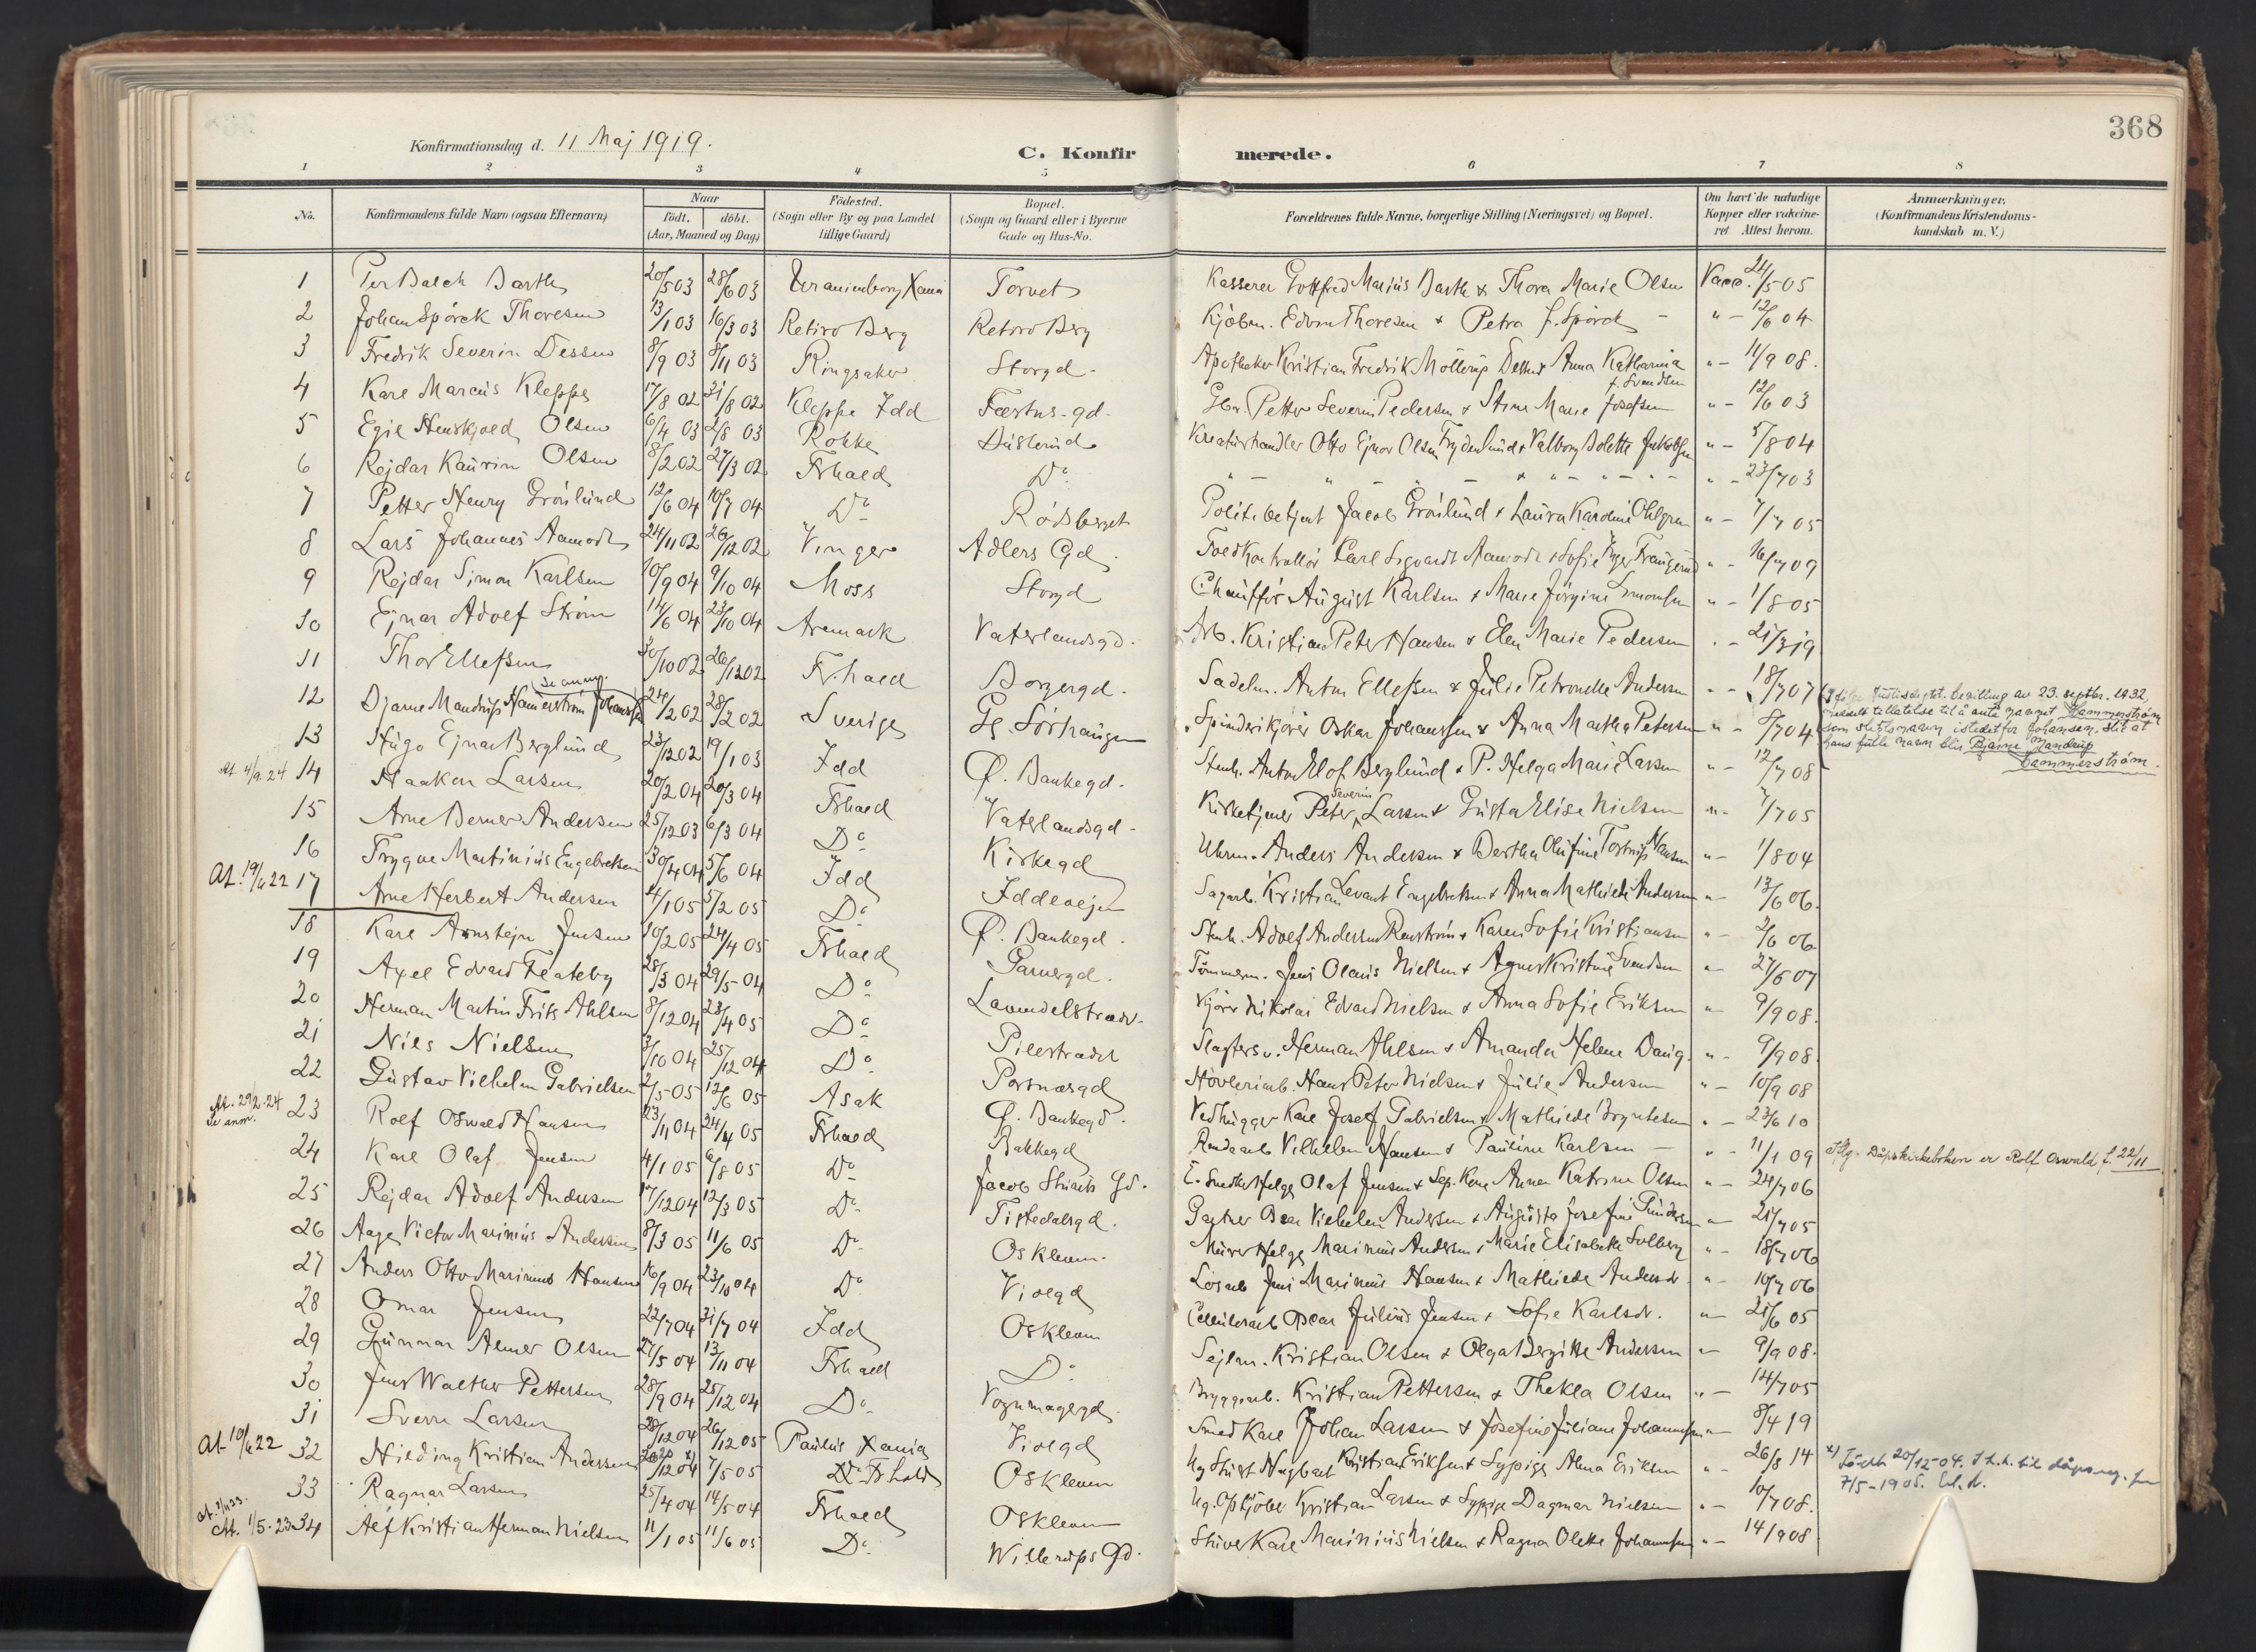 368
Konfirmationsdag d. 11 Maj 1919.
C. Konfirmerede.
1 2 3 4 5 6 7 8
No.
Konfirmandens fulde Navn (ogsaa Efternavn)
Naar
født. døbt.
(Aar, Maaned og Dag)
Fødested.
(Sogn eller By og paa Landet
tillige Gaard)
Bopæl.
(Sogn og Gaard eller i Byerne
Gade og Hus-No.
Forældrenes fulde Navne, borgerlige Stilling (Næringsvei) og Bopæl.
Om havt de naturlige
Kopper eller vakcine-
ret Attest herom.
Anmærkninger.
(Konfirmandens Kristendoms-
kundskab m. V.)
1 Per Balch Barth 20/5 03 28/6 03 Uranienborg Xania Torvet Kasserer Gottfred Marius Barth & Thora Marie Olsen Vacc. 24/5 05
2 Johan Spörck Thoresen 13/1 03 16/3 03 Retiro Berg Retiro Berg Kjøbm. Edvin Thoresen & Petra f. Spörck " - 12/6 04
3 Fredrik Severin Dessen 8/9 03 8/11 03 Ringsaker Storgd. Apotheker Kristian Fredrik Möllerup Dessen & Anna Katharina f. Svendsen " - 11/9 08.
4 Kare Marcus Kleppe 17/8 02 31/8 02 Kleppe Idd Fæstns-gd. Petter Severin Pedersen & Stina Marie Josefsen " - 12/6 03
5 Egil Henskjold Olsen 6/4 03 2/8 03 Rokke Kreaturhandler Otto Ejnar Olsen Frydenlund & Valborg Bolette Jakobsen " - 5/8 04
6 Rejdar Kaurin Olsen 8/2 02 27/3 02 Frhald Do " - 23/7 03
7 Petter Henry Grönlund 12/6 04 10/7 04 Do Rödsberget Politibetjent Jacob Grönlund & Laura Karoline Ohlgren " - 7/7 05
8 Lars Johannes Aamodt 24/11 02 26/12 02 Vinger Adlers Gd. Toldkontrollör Carl Sigvardt Aamodt & Sofie " - 16/7 09
9 Rejdar Simon Karlsen 10/9 04 9/10 04 Moss Storgd Chauffør August Karlsen & Marie Jörgine Simonsen " - 1/8 05
10 Ejnar Adolf Ström 14/6 04 23/10 04 Aremark Vaterlandsgd. Arb. Kristian Peter Hansen & Elen Marie Pedersen " - 21/3 19
11 Thor Ellefsen 30/10 02 26/12 02 Fr.hald Borgergd. Sadelm. Anton Ellefsen & Julie Petronelle Andersen " - 18/7 07
12 Bjarne Mandrup Hammerström Johansen Se anm. 24/1 02 28/2 02 Sverige Gl. Sörhaugen Spinderikjörer Oskar Johansen & Anna Martha Petersen " - 5/7 04 Ifölge Justisdeptet. bevilling av 23. septbr. 1932,
meddelt tillatelse til å anta navnet Hammerström
som slektsnavn istedetfor Johansen, slik at
hans fulle navn blir Bjarne Mandrup
Hammerström.
13 Hugo Ejnar Berglund 23/12 02 19/1 03 Idd Ø. Bankegd. Stenh. Anton Elof Berglund & P. Helga Marie Larsen " - 12/7 08
At. 4/9. 24 14 Haakon Larsen 20/2 04 20/3 04 Frhald Vaterlandsgd. Kirketjener Peter Severin Larsen & Gusta Elise Nielsen " - 7/7 05
15 Arne Berner Andersen 25/12 03 6/3 04 Do Kirkegd Uhrm. Anders Andersen & Bertha Olufine Hansen " - 1/8 04
16 Trygve Martinius Engebretsen 30/4 04 5/6 04 Idd Iddevejen Sagarb. Kristian Levant Engebretsen & Anna Mathilde Andersen " - 13/6 06.
At. 19/6 22 17 Arne Herbert Andersen 4/1 05 5/2 05 Do Ø. Bankegd. Stenh. Adolf Andersen Renström & Karen Sofie Kristiansen " - 2/6 06
18 Karl Arnstejn Jensen 10/2 05 24/4 05 Frhald Garvergd. Tömmerm. Jens Olavis Nielsen & Agnes Kristine Svendsen " 27/6 07
19 Axel Edvard Flateby 28/3 04 29/5 04 Do Lavendelstrædet Kjörer Nikolai Edvard Nielsen & Anna Sofie Eriksen " 9/9 08.
20 Herman Martin Frik Ahlsen 8/12 04 23/4 05 Do Pilestrædet Slagtersv. Herman Ahlsen & Amanda Helene Daug. " - 9/9 08.
21 Nils Nielsen 3/10 04 25/12 04 Do Portnersgd Høvleriarb. Hans Peter Nielsen & Julie Andersen " - 10/9 08
22 Gustav Vilhelm Gabrielsen 2/5 05 12/6 05 Asak Ø. Bankegd. Vedhugger Karl Josef Gabrielsen & Mathilde Bryntesen " - 23/6 10
At. 29/2. 24 Se anm. 23 Rolf Oswald Hansen 23/11 04 24/4 05 Frhald Bakkegd Vilhelm Hansen & Pauline Karlsen " - 11/1 09 Iflg. Dåpskirkeboken er Rolf Oswald f. 22/11
24 Karl Olaf Jensen 4/1 05 6/8 05 Do Jacob Stuarts Gd. E. Snedker Helge Olaf Jensen & Sep. Kone Anna Katrine Olsen " - 24/7 06
25 Rejdar Adolf Andersen 17/12 04 12/3 05 Do Tistedalsgd. Gartner Vilhelm Andersen & Augusta Josefine Gundersen " 21/7 05
26 Aage Victor Marinius Andersen 8/3 05 11/6 05 Do Oskleven. Murer Helge Marinius Andersen, Marie Elisabeth Solberg " - 18/7 06
27 Anders Otto Marinius Hansen 16/9 04 23/10 04 Do Violgd Losarb Jens Marinius Hansen & Mathilde Andersdr " - 10/7 06
28 Omar Jensen 22/7 04 31/7 04 Idd Oskleven Cellulosarb Oscar Julius Jensen & Sofie Karlsdr. " - 21/6 05
29 Gunnar Almer Olsen 27/5 04 13/11 04 Frhald Do Sejlm. Kristian Olsen & Olga Bergitte Andersen " - 9/9 08.
30 Jens Walther Pettersen 28/9 04 25/12 04 Do Vognmagergd. Bryggearb. Kristian Pettersen & Thekla Olsen " - 14/7 05
31 Sverre Larsen 28/12 04 26/12 05 Paulus Xania Violgd Smed Karl Johan Larsen & Josefine Juliane Johannesen " - 8/4 19
At. 10/6 22 32 Hilding Kristian Andersen 20/12 04 x) 7/5 05 Frhald Oskleven Kristian Eriksen & Sypige Alma Eriksen " 26/8 14 x) Födt 20/12-04. I h.h. til dåpsreg. for
7/5-1905.
33 Ragnar Larsen 25/4 04 14/5 04 Frhald Oskleven Ug. Opkjöber Kristian Larsen & Sypige Dagmar Nielsen " - 10/7 08.
At. 1/5. 23 34 Alf Kristian Herman Nielsen 11/1 05 11/6 05 Do Willerups Gd. Stuver Karl Marinius Nielsen & Ragna Olette Johannesen " - 14/9 08